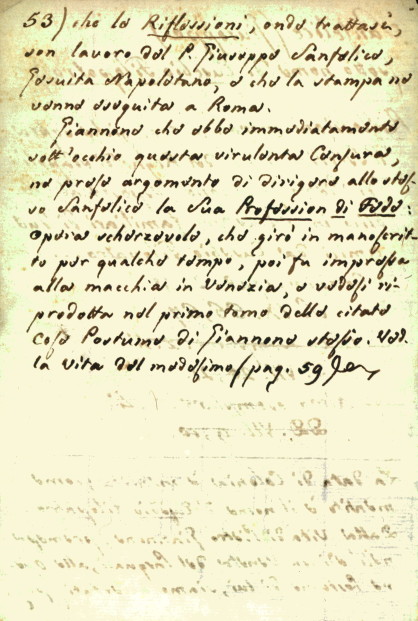 53) che le Riflessioni, onde trattasi,
son lavoro del P. Giuseppe Sanfelice,
Gesuita Napoletano, e che la stampa ne
venne eseguita a Roma.
Giannone che ebbe immediatamente
sott'occhio questa virulenta Censura,
ne prese argomento di dirigere allo stes-
so Sanfelice la sua Profession di Fede:
opera scherzevole, che girò in manoscrit-
to per qualche tempo, poi fu impressa
alla macchia in Venezia, e vedesi ri-
prodotta nel primo tomo delle citate
cose Postume di Giannone stesso. Ved.
la Vita del medesimo (pag. 59